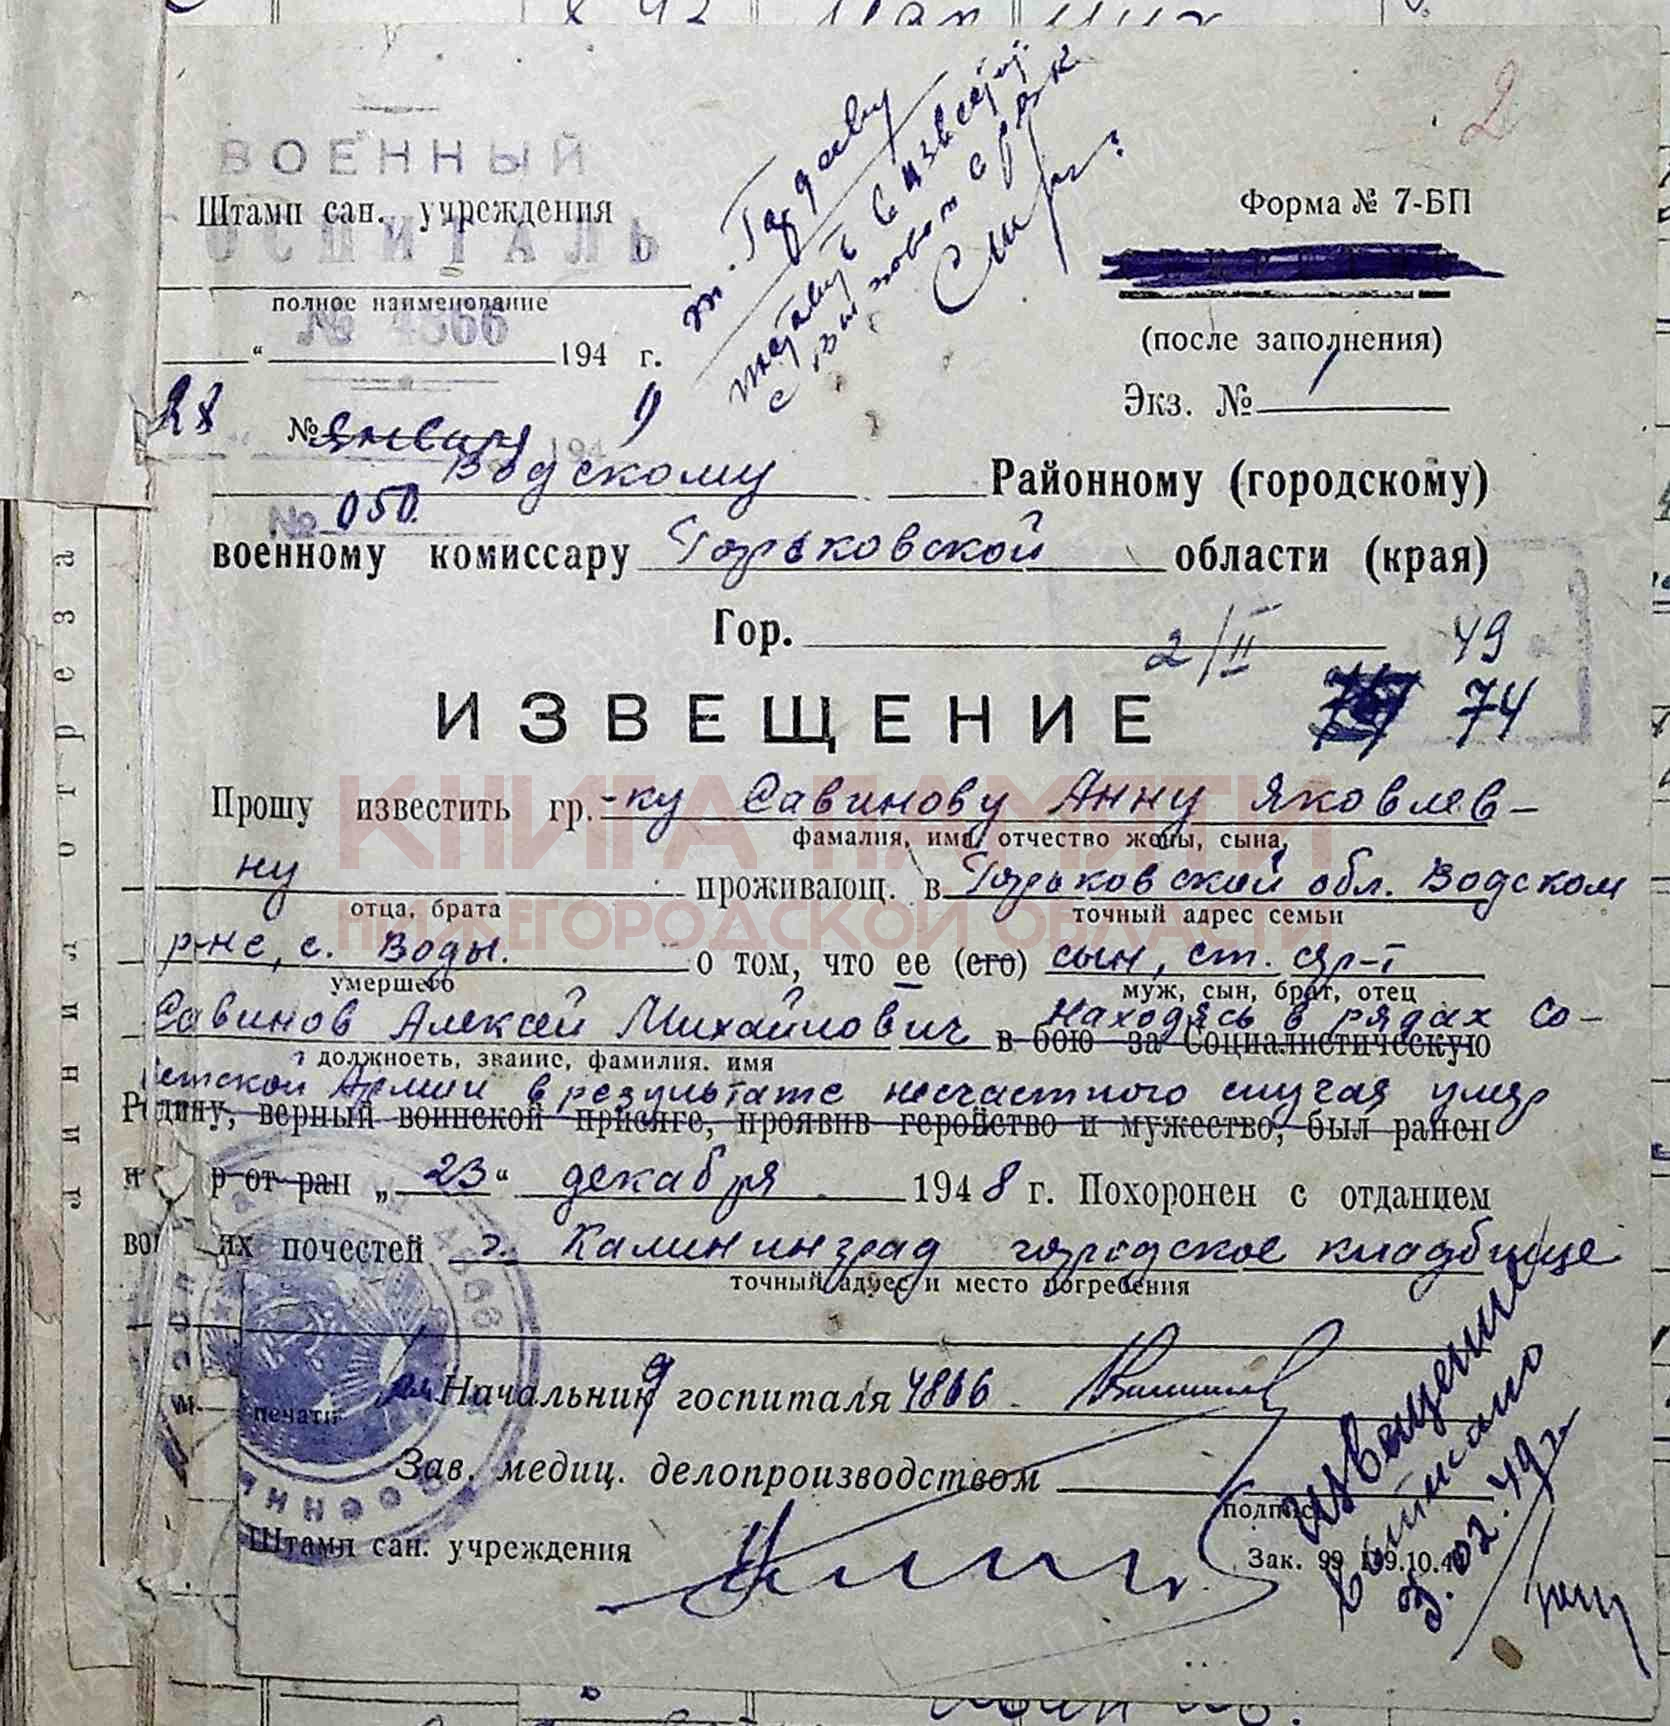 2
ВОЕННЫЙ
Штамп сан. учреждения
ГОСПИТАЛЬ
полное наименование
№ 4866
"194 г.
т. Гордееву
Форма № 7-БП
(после заполнения)
Экз. № 1
28 января 194 9
Водскому Районному (городскому)
№ 050.
военному комиссару Горьковской области (края)
Гор.
2/II 49
74
ИЗВЕЩЕНИЕ
Прошу известить гр.-ку Савинову Анну Яковлев-
фамалия, имя, отчество жены, сына,
ну проживающ. в Горьковской обл. Водском
отца, брата точный адрес семьи
р-не, с. Воды. о том, что ее (его) сын, ст. сер-т
умершего муж, сын, брат, отец
Савинов Алексей Михайлович Находясь в рядах Со-
в бою за Социалистическую
должность, звание, фамилия. имя
ветской Армии в результате несчастного случая умер
Родину, верный воинской присяге, проявив геройство и мужество, был ранен
и р от ран „23“ декабря 1948 г. Похоронен с отданием
воинских почестей г. Калининград городское кладбище
точный адрес и место погребения
Начальник госпиталя 4866
печати
Зав. медиц. делопроизводством
подпись
Штамп сан. учреждения
Зак. 99
извещение
выписано
3.02.49г
КНИГА ПАМЯТИ
НИЖЕГОРОДСКОЙ ОБЛАСТИ
линия отреза